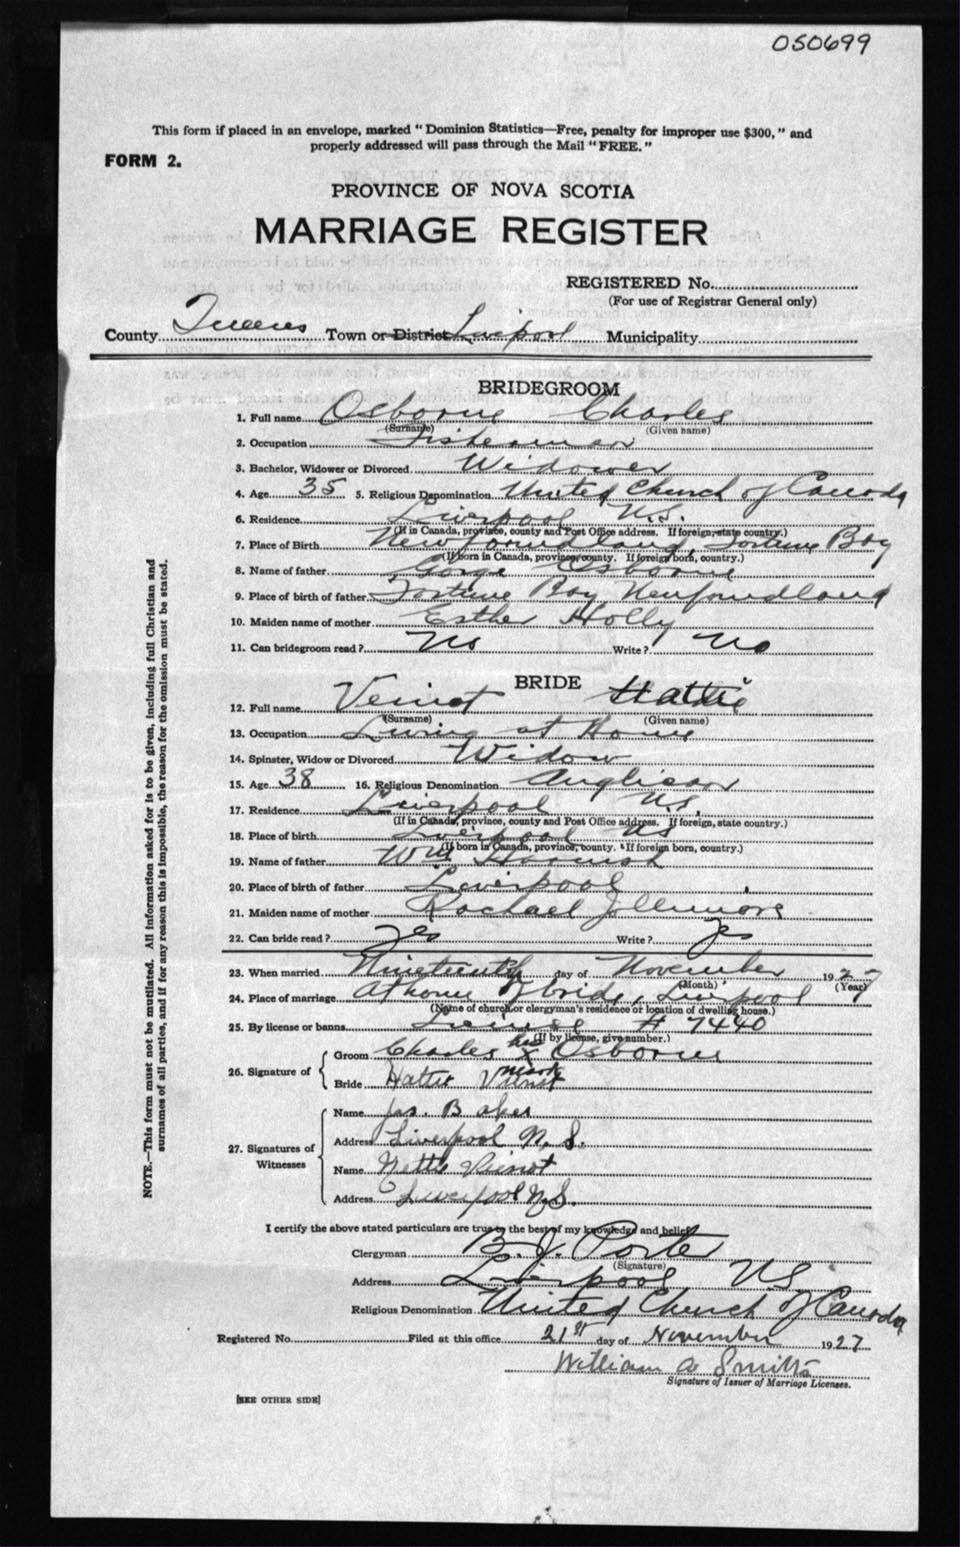 050699
This form if placed in an envelope, marked "Dominion Statistics—Free, penalty for improper use $300," and
properly addressed will pass through the Mail "FREE."
FORM 2.
PROVINCE OF NOVA SCOTIA
MARRIAGE REGISTER
REGISTERED No.
(For use of Registrar General only)
County Queens Town or District Liverpool Municipality
BRIDEGROOM
1. Full name Osborne Charles
(Surname) (Given name)
2. Occupation Fisherman
3. Bachelor, Widower or Divorced Widower
4. Age 35 5. Religious Denomination United Church of Canada
6. Residence Liverpool N.S.
(If in Canada, province, county and Post Office address. If foreign, state country.)
7. Place of Birth Newfoundland, Fortune Bay
(If born in Canada, province, county. If foreign born, country.)
8. Name of father George Osborne
9. Place of birth of father Fortune Bay Newfoundland
10. Maiden name of mother Esther Holly
11. Can bridegroom read? No Write? No
BRIDE
12. Full name Veinot Hattie
(Surname) (Given name)
13. Occupation Living at Home
14. Spinster, Widow or Divorced Widow
15. Age 38 16. Religious Denomination Anglican
17. Residence Liverpool N.S.
(If in Canada, province, county and Post Office address. If foreign, state country.)
18. Place of birth Liverpool NS
(If born in Canada, province, county. If foreign born, country.)
19. Name of father Wm
20. Place of birth of father Liverpool
21. Maiden name of mother Rachael
22. Can bride read? Yes Write? Yes
23. When married Nineteenth day of November 1927
(Month) (Year)
24. Place of marriage At home of bride, Liverpool
(Name of church or clergyman's residence or location of dwelling house.)
25. By license or banns License # 7440
(If by license, give number.)
26. Signature of
Groom Charles his x mark Osborne
Bride Hattie Veinot
27. Signatures of Witnesses
Name Jas. Baker
Address Liverpool N.S.
Name Veinot
Address Liverpool N.S.
I certify the above stated particulars are true to the best of my knowledge and belief.
Clergyman B. J. Porter
(Signature)
Address Liverpool NS
Religious Denomination United Church of Canada
Registered No. Filed at this office 21st day of November 1927
William A Smith
Signature of Issuer of Marriage Licenses.
[SEE OTHER SIDE]
NOTE.—This form must not be mutilated. All information asked for is to be given, including full Christian and
surnames of all parties, and if for any reason this is impossible, the reason for the omission must be stated.